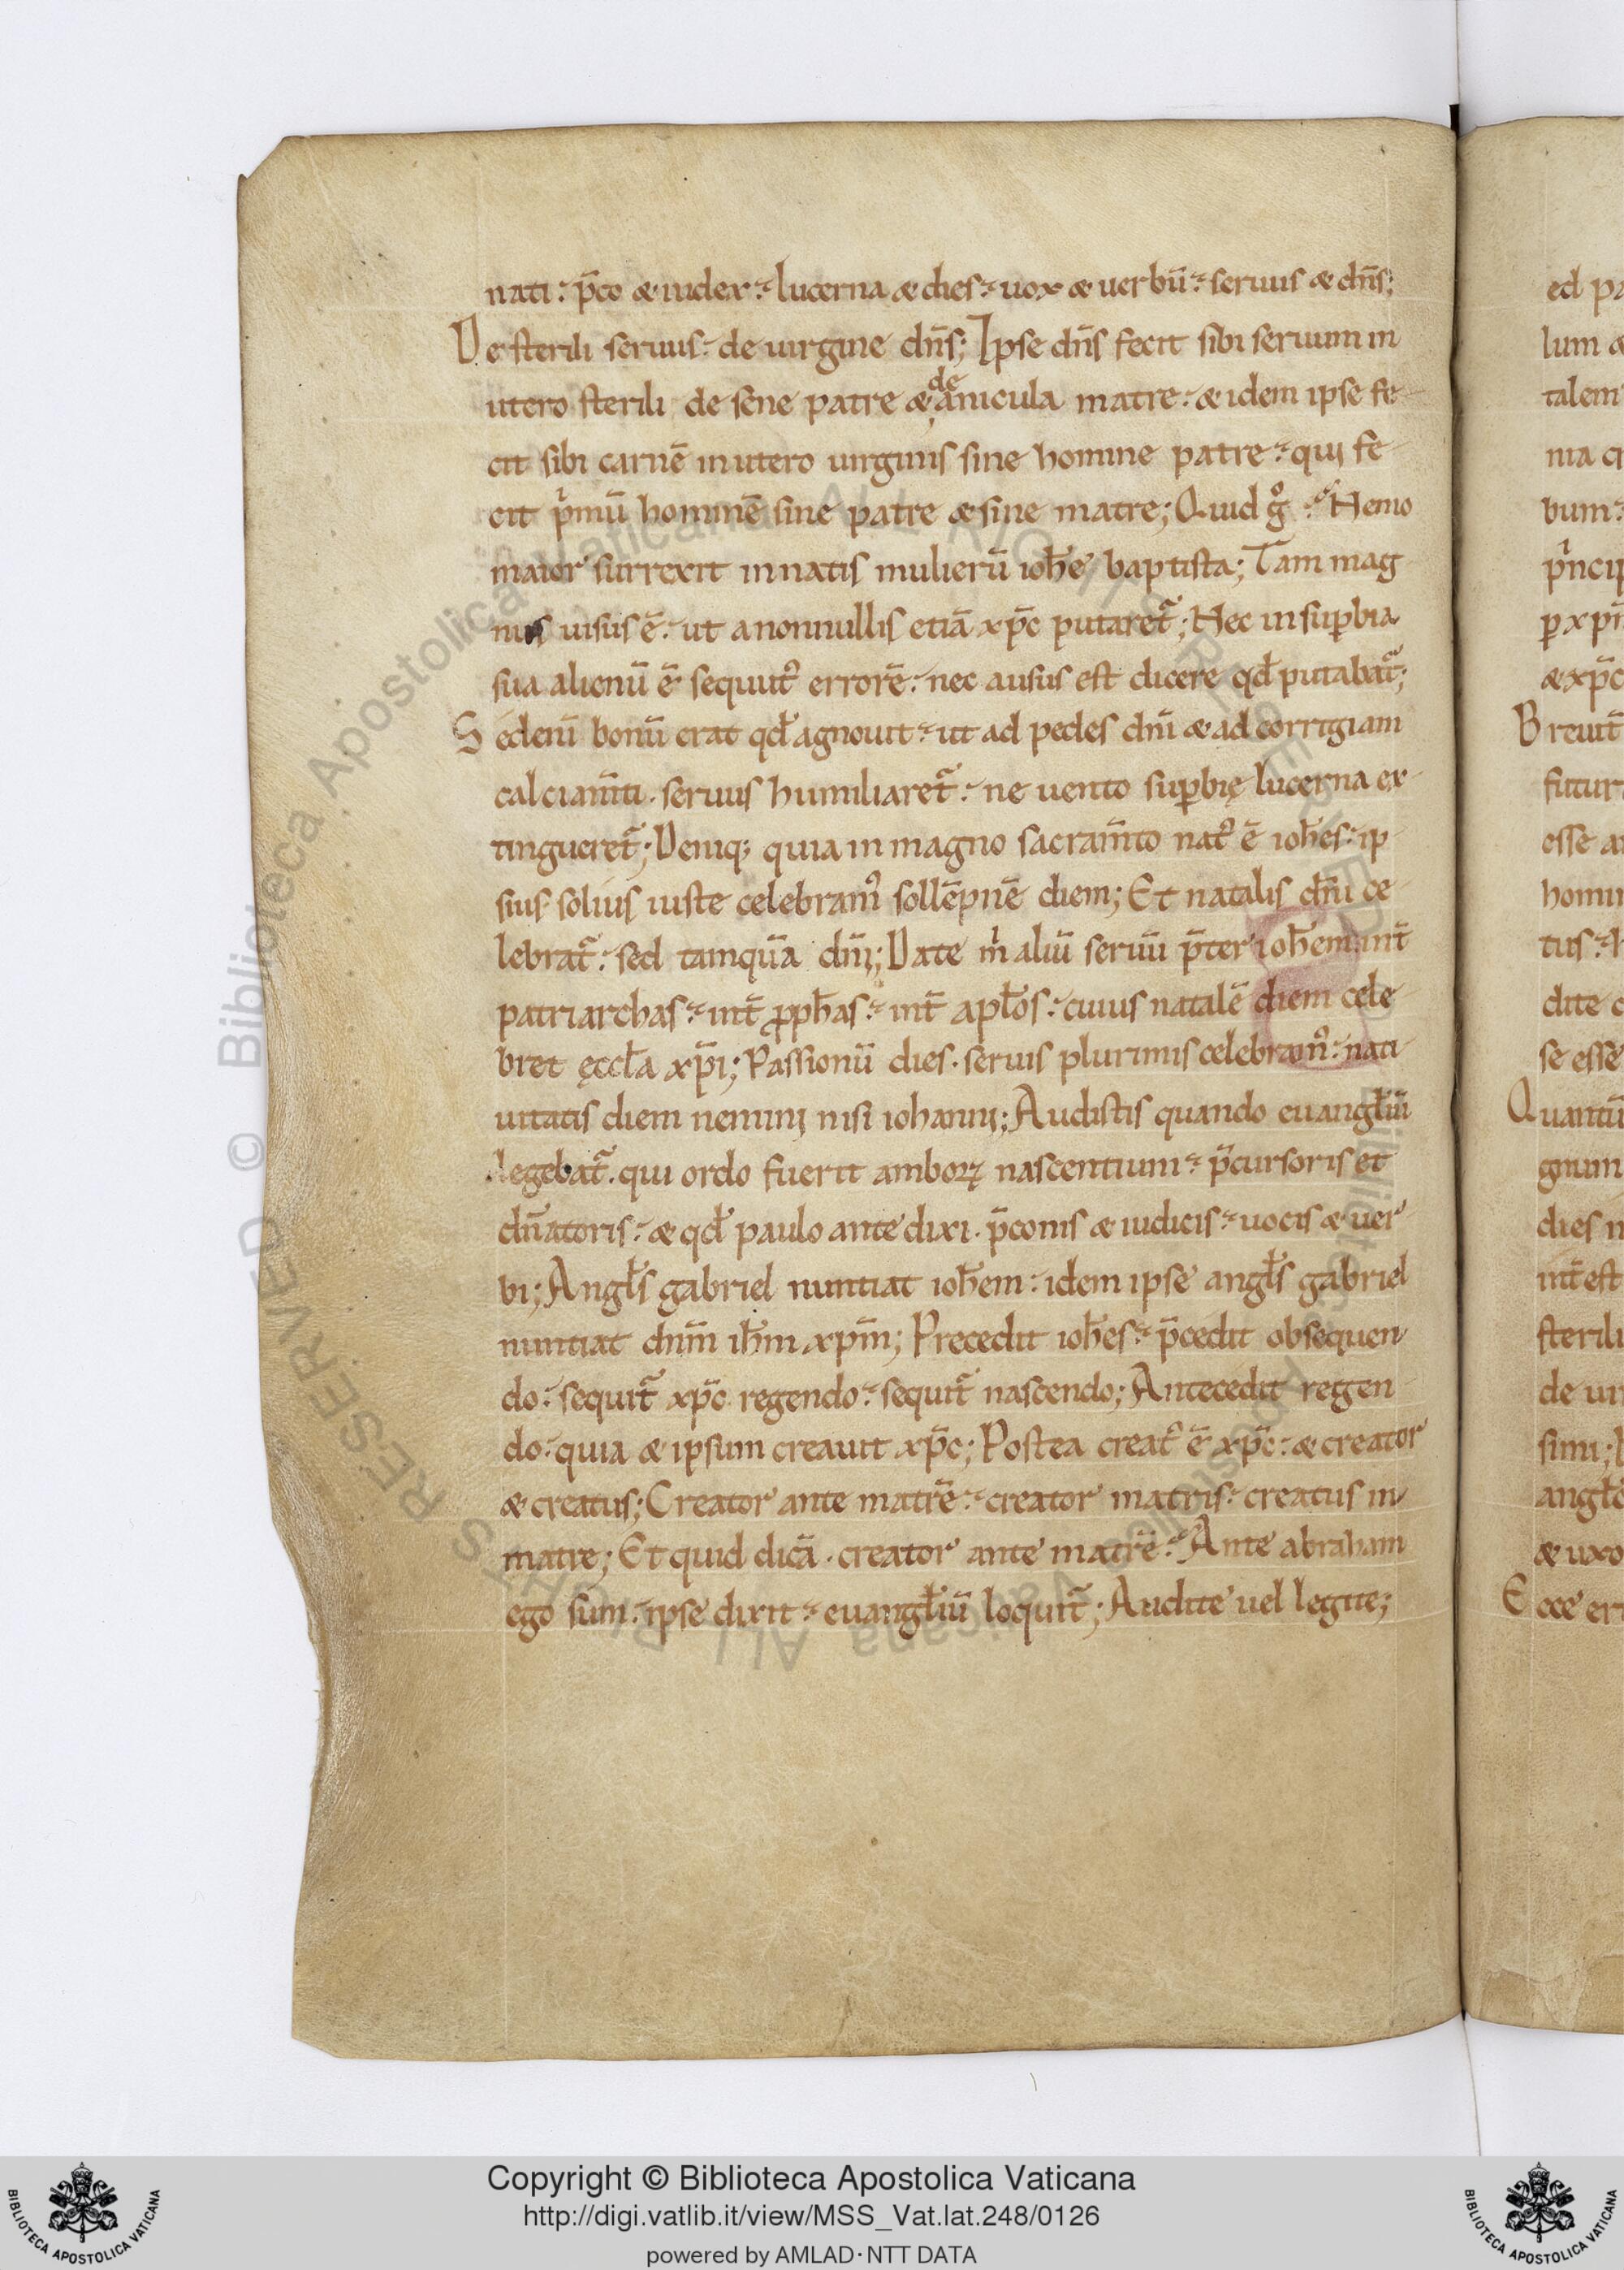 nati: p̄co & iudex: lucerna & dies: uox & uerbū: seruus & dn̄s;
De sterili seruus: de uirgine dn̄s; Ipse dn̄s fecit sibi seruum in
utero sterili de sene patre & de anicula matre: & idem ipse fe
cit sibi carnē in utero uirginis sine homine patre: qui fe
cit pͥmū hominē sine patre & sine matre; Quid gͦ: Nemo
maior surrexit in natis mulierū ioh̄e baptista; Tam mag
nus uisus ē: ut a nonnullis etiā xp̄c putaret᷑; Nec in suꝑbia
sua alienū ē sequutꝰ errorē: nec ausus est dicere qđ putabat᷑;
Sed enī bonū erat qđ agnouit: ut ad pedes dn̄i & ad corrigiam
calciam̄ti. seruus humiliaret᷑: ne uento suꝑbię lucerna ex
tingueret᷑; Deniq; quia in magno sacram̄to natꝰ ē ioh̄es: ip
sius solius iuste celebramꝰ sollēpnē diem; Et natalis dn̄i ce
lebrat᷑: sed tamquā dn̄i; Date m̍ aliū seruū p̄ter ioh̄em int̄
patriarchas: int̄ ꝓph̄as: int̄ apl̄os: cuius natalē diem cele
bret ęccl̄a xp̄i; Passionū dies. seruis plurimis celebramꝰ: nati
uitatis diem nemini nisi iohanni; Audistis quando euangl̄iū
legebat᷑. qui ordo fuerit amboꝝ nascentium: p̄cursoris et
dn̄atoris: & qđ paulo ante dixi. p̄conis & iudicis: uocis & uer
bi; Angl̄s gabriel nuntiat ioh̄em: idem ipse angl̄s gabriel
nuntiat dn̄m ih̄m xp̄m; Precedit ioh̄es: p̄cedit obsequen
do: sequit᷑ xp̄c regendo: sequit᷑ nascendo; Antecedit regen
do: quia & ipsum creauit xp̄c; Postea creatꝰ ē xp̄c: & creator
& creatus; Creator ante matrē: creator matris: creatus in
matre; Et quid dicā. creator ante matrē: Ante abraham
ego sum: ipse dixit: euangl̄iū loquit᷑; Audite uel legite;
ed
lum
talem
ma
bum:
pͥncip
ꝑ xp̄
& xp̄c
Breuit̄
futur
esse
homin
tus:
dite
se esse
Quantū
gnum
dies
int̄ est
sterili
de
simi;
angl̄
& uxo
Ecce
© Biblioteca Apostolica Vaticana ALL RIGHTS RESERVED
Copyright © Biblioteca Apostolica Vaticana
http://digi.vatlib.it/view/MSS_Vat.lat.248/0126
powered by AMLAD·NTT DATA
BIBLIOTECA APOSTOLICA VATICANA
BIBLIOTECA APOSTOLICA VATICANA